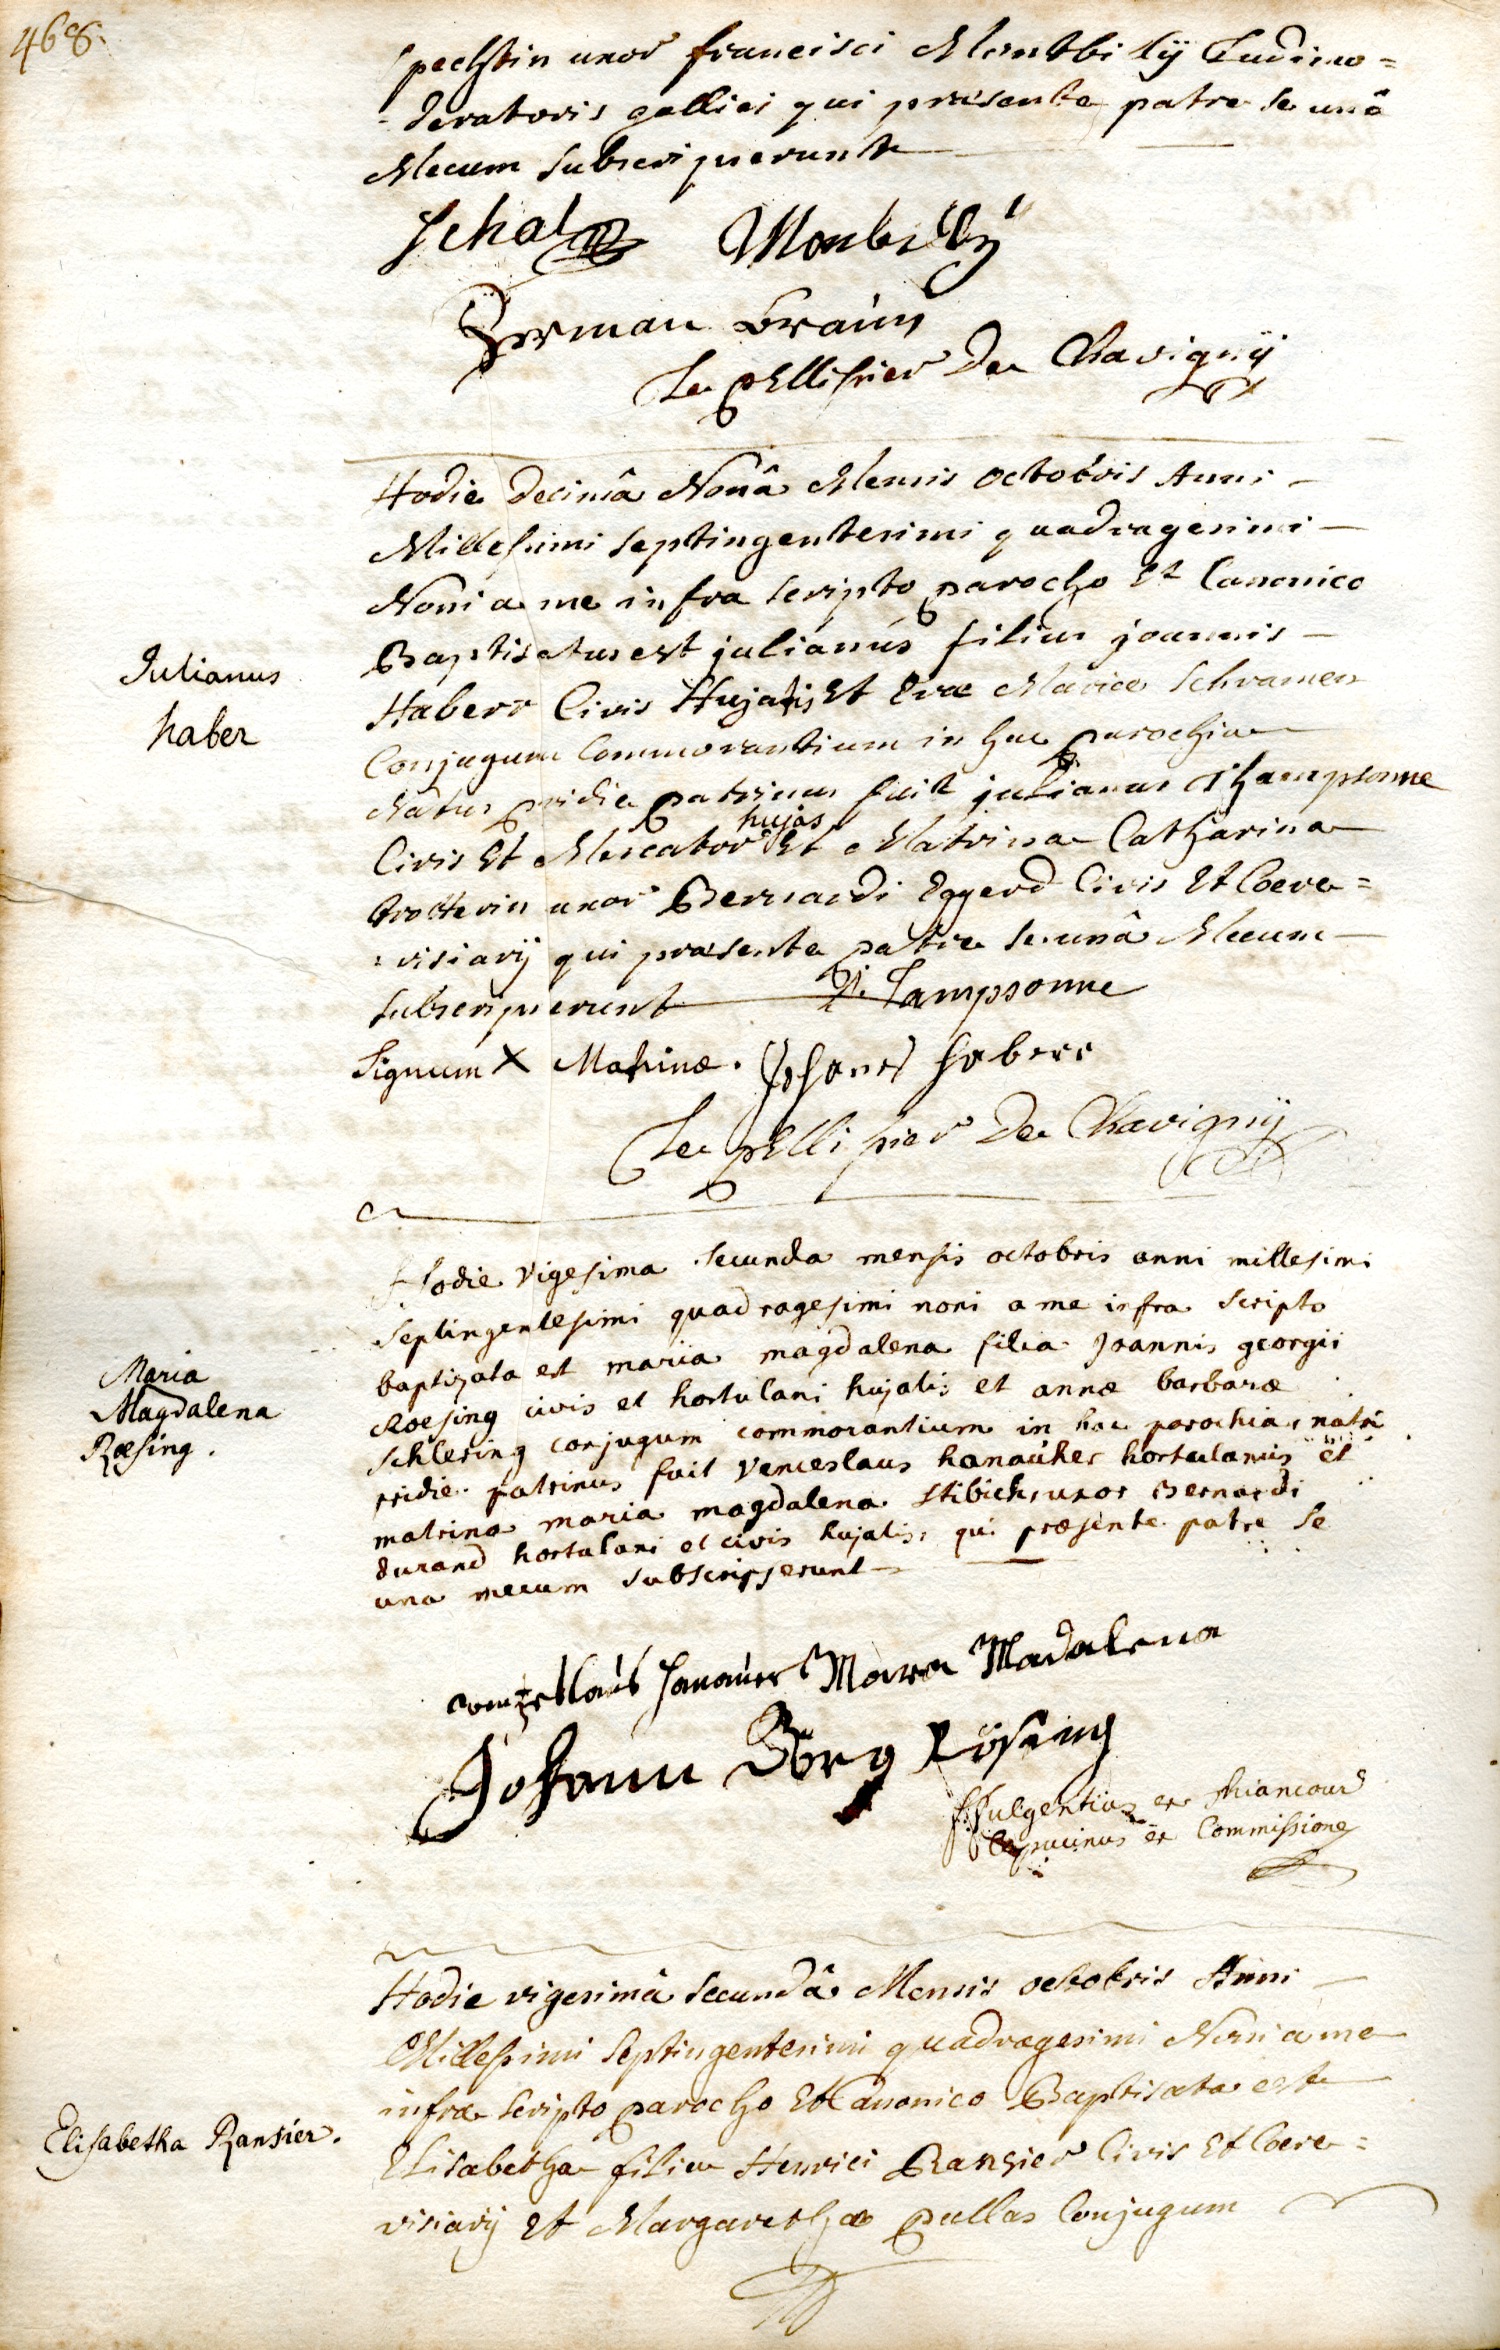 468.
pechtin uxor francisci Montbilÿ Ludimo=
-deratoris gallici qui præsente patre se unâ
Mecum subscripserunt
Schalz Monbilÿ
Herman Braun
Le Pellissier De Chavignÿ
Hodie decimâ Nonâ Mensis octobris Anni
Millessimi septingentesimi quadragesimi
Noni a me infra scripto parocho Et Canonico
Baptisatus est julianus filius joannis
Julianus
haber
Haberr Civis Hujatis Et Evæ Mariæ Schramen
Conjugum Commorantium in hac parochia
Natus pridie patrinus fuit julianus Thampsonne
Civis Et Mercator hujas Et Matrina Catharina
uxor Bernardi Eggerd Civis Et Coere=
=visiarÿ qui præsente patre se unâ Mecum
subscripserunt J. Tampsonne
Signum X Matrinæ. Johanes Haberr
Le Pellissier De Chavignÿ
Hodie vigesima secunda mensis octobris anni millesimi
septingentesimi quadragesimi noni a me infra scripto
baptizata est maria magdalena filia Joannis georgii
Maria
Magdalena
Ræsing.
Roesing civis et hortulani hujatis et annæ barbaræ
Schlesing conjugum commorantium in hac parochia, nata
pridie. patrinus fuit Venceslaus hanauher hortulanus et
matrina maria magdalena Stibich, uxor Bernardi
durand hortulani et civis hujatis, qui præsente patre se
una mecum subscripserunt
wenzeslaus Hanauer Maria Madalena
Johann Görg Rösing
f. fulgentius ex thiancour
Capucinus ex Commissione
Hodie vigesimâ secundâ Mensis octobris Anni
Millessimi septingentesimi quadragesimi Noni a me
infra scripto parocho Et Canonico Baptisata est
Elisabetha Ransier.
Elisabetha filia Henrici Ransier Civis Et Coere=
visiarÿ Et Margarethæ pallas Conjugum